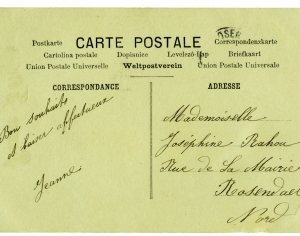 CARTE POSTALE
OSER
Postkarte
Correspondenskarte
Cartolina postale
Dopisnice
Levelező-lap
Briefkaart
Union Postale Universelle
Weltpostverein
Union Postale Universale
CORRESPONDANCE
ADRESSE
Bon souhaits
et baiser affectueux
Jeanne
Mademoiselle
Joséphine Rahou
Rue de La Mairie
Rosendael
Nord